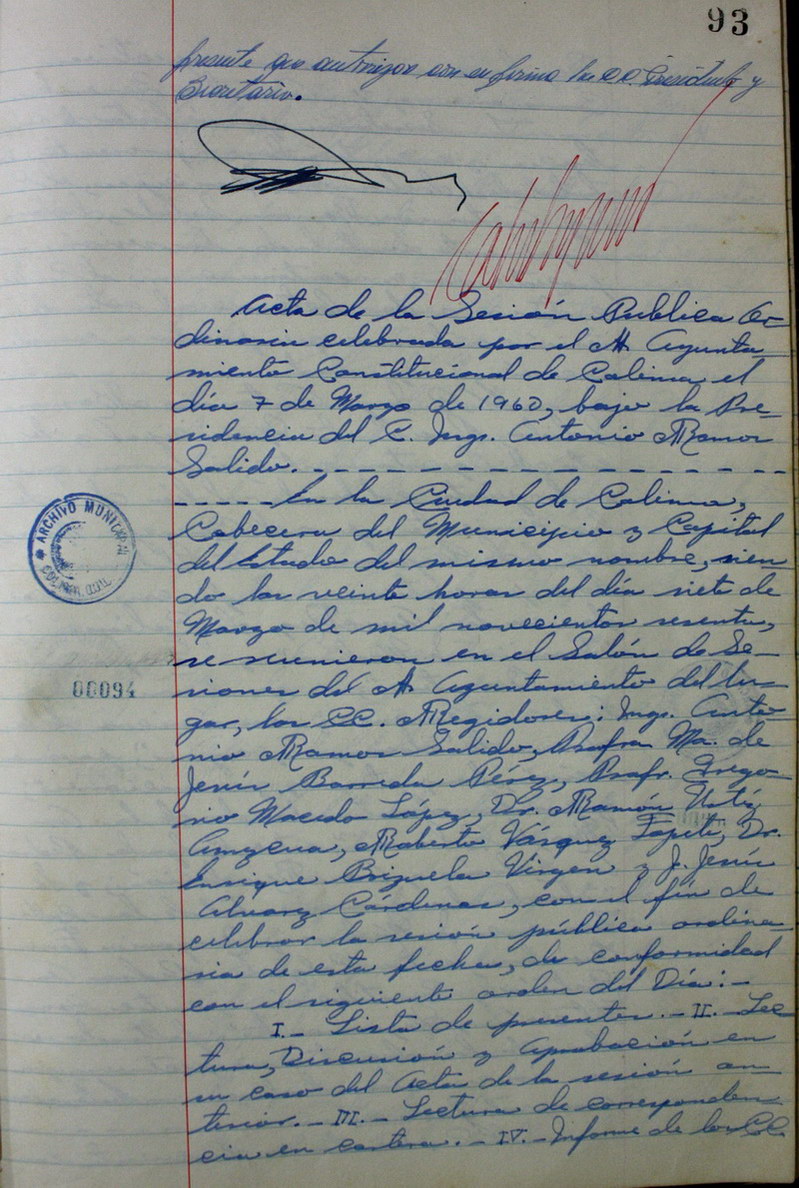 93
presente que autorizan con su firma los CC. Presidente y
Secretario.
Acta de la Sesión Publica Or-
dinaria celebrada por el H. Ayunta-
miento Constitucional de Colima el
día 7 de Marzo de 1960, bajo la Pre-
sidencia del C. Ing. Antonio Ramos
Salido. - - - - - - - - - - - - - - -
- - - - - En la Ciudad de Colima,
Cabecera del Municipio y Capital
del Estado del mismo nombre, sien-
do las veinte horas del día siete de
Marzo de mil novecientos sesenta,
se reunieron en el Salón de Se-
siones del H. Ayuntamiento del lu-
gar, los CC. Regidores: Ing. Anto-
nio Ramos Salido, Profra. Ma. de
Jesús Barreda Pérez, Profr. Grego-
rio Macedo López, Dr. Ramón
Amezcua, Roberto Vásquez Dr.
Enrique Brizuela Virgen y J. Jesús
Alvarez Cárdenas, con el fín de
celebrar la sesión pública ordina-
ria de esta fecha, de conformidad
con el siguiente orden del Día: -
I.- Lista de presentes. - II. - Lec
tura, Discusión y Aprobación en
su caso del Acta de la sesión an-
terior. - III. - Lectura de corresponden
cia en cartera. - IV. - Informe de los CC.
ARCHIVO MUNICIPAL
00094